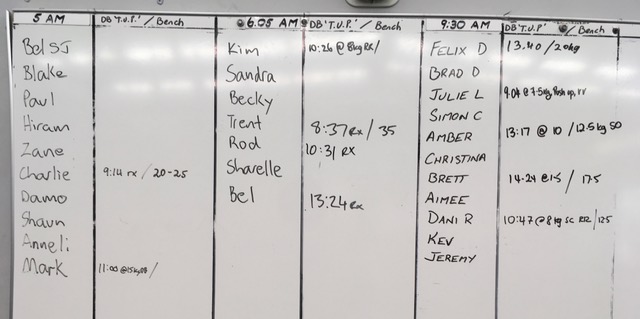 5 AM DB 'T.U.P.' / Bench
Bel SJ
Blake
Paul
Hiram
Zane
Charlie 9:14 rx / 20-25
Damo
Shaun
Anneli
Mark 11:00 @15kg DB /
6.05 AM DB 'T.U.P.' / Bench
Kim 10:26 @ 8kg RX /
Sandra
Becky
Trent 8:37 rx / 35
Rod 10:31 RX
Sharelle
Bel 13:24 rx
9:30 AM DB 'T.U.P' / Bench
FELIX D 13.40 / 20kg
BRAD D
JULIE L 9.04 @ 7.5kg Push up,
SIMON C
AMBER 13:17 @ 10 / 12.5 kg
CHRISTINA
BRETT 14.24 @15 / 17.5
AIMEE
DANI R 10:47 @ 8 kg SC / 12.5
KEV
JEREMY